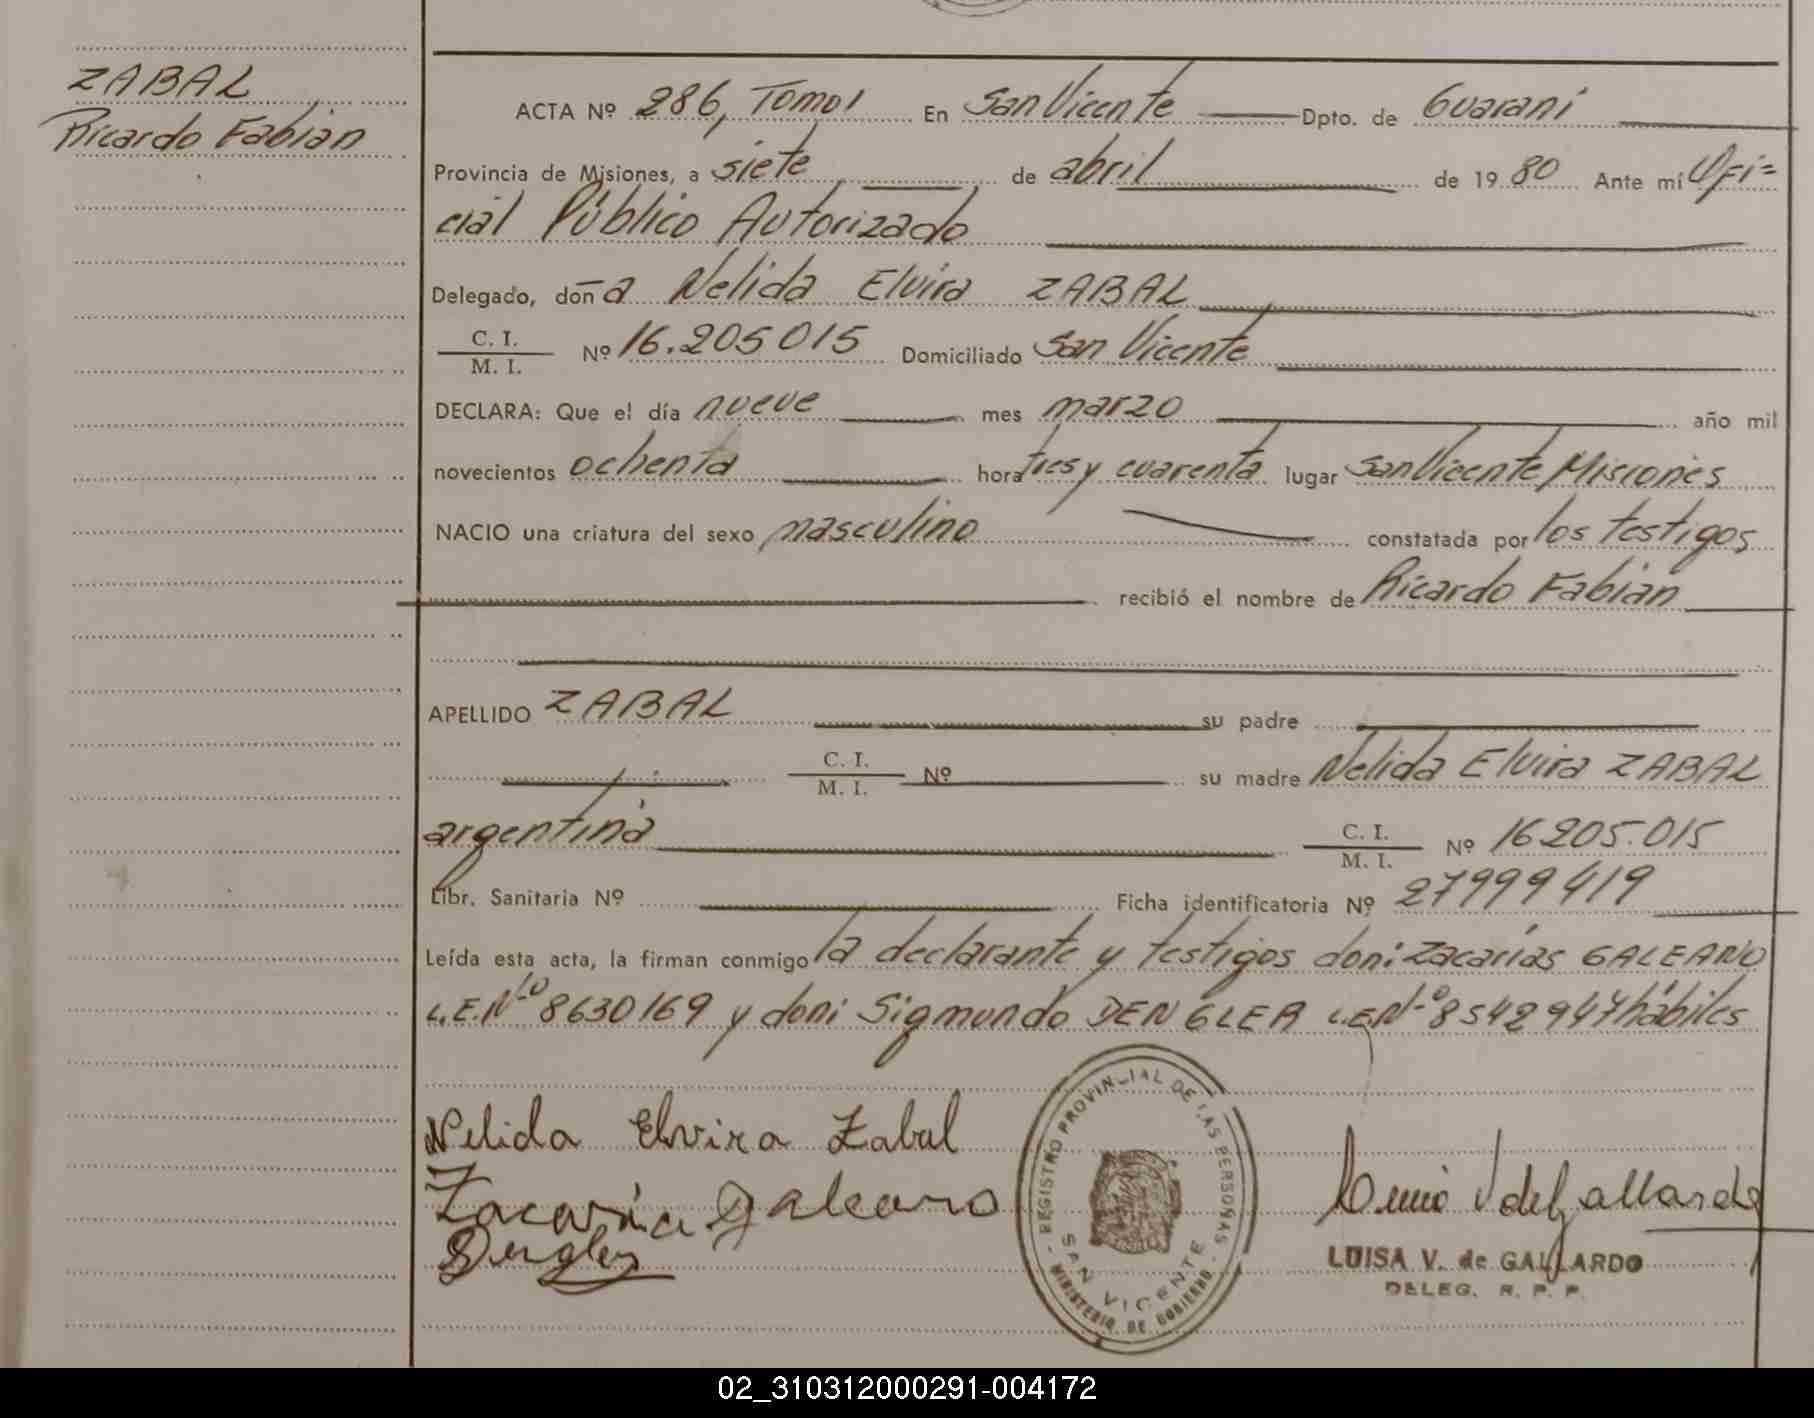 ZABAL
Ricardo Fabian
ACTA Nº 286, Tomo I En San Vicente Dpto. de Guarani
Provincia de Misiones, a siete de abril de 1980 Ante mí Ofi=
cial Público Autorizado
Delegado, doña Nelida Elvira ZABAL
C. I.
M. I.
Nº 16.205015 Domiciliado San Vicente
DECLARA: Que el día nueve mes marzo año mil
novecientos ochenta hora tres y cuarenta lugar San Vicente Misiones
NACIO una criatura del sexo masculino constatada por los testigos
recibió el nombre de Ricardo Fabian
APELLIDO ZABAL su padre
C. I.
M. I.
Nº su madre Nelida Elvira ZABAL
argentina C. I.
M. I.
Nº 16205.015
Libr. Sanitaria Nº Ficha identificatoria Nº 27999419
Leída esta acta, la firman conmigo la declarante y testigos don: Zacarías GALEANO
L.E.Nº 8630169 y don: Sigmundo DENGLER L.E.Nº 8542947 hábiles
Nelida Elvira Zabal
Zacaria Galeano
Dengler
REGISTRO PROVINCIAL DE LAS PERSONAS
SAN VICENTE
MINISTERIO DE GOBIERNO
V de Gallardo
LUISA V. de GALLARDO
DELEG. R. P. P.
02_310312000291-004172